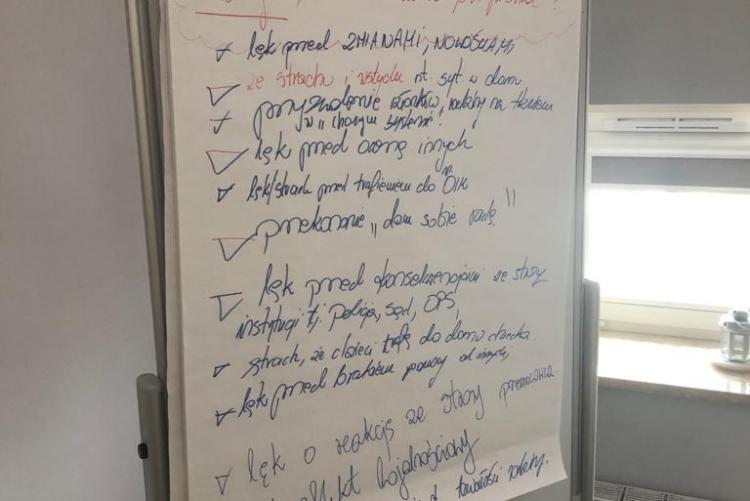 lęk przed ZMIANAMI, NOWOŚCIAMI
ze strachu i wstydu nt. syt. w domu
przyzwolenie członków rodziny na tkwienie
w "chorym systemie"
lęk przed oceną innych
lęk/strach przed trafieniem do OIK
przekonanie "dam sobie radę"
lęk przed konsekwencjami ze strony
instytucji tj. policja, sąd, OPS,
strach, że dzieci trafią do domu dziecka
lęk przed brakiem pomocy od innych,
lęk o reakcję ze strony przemocowca
lojalnościowy
rodziny.